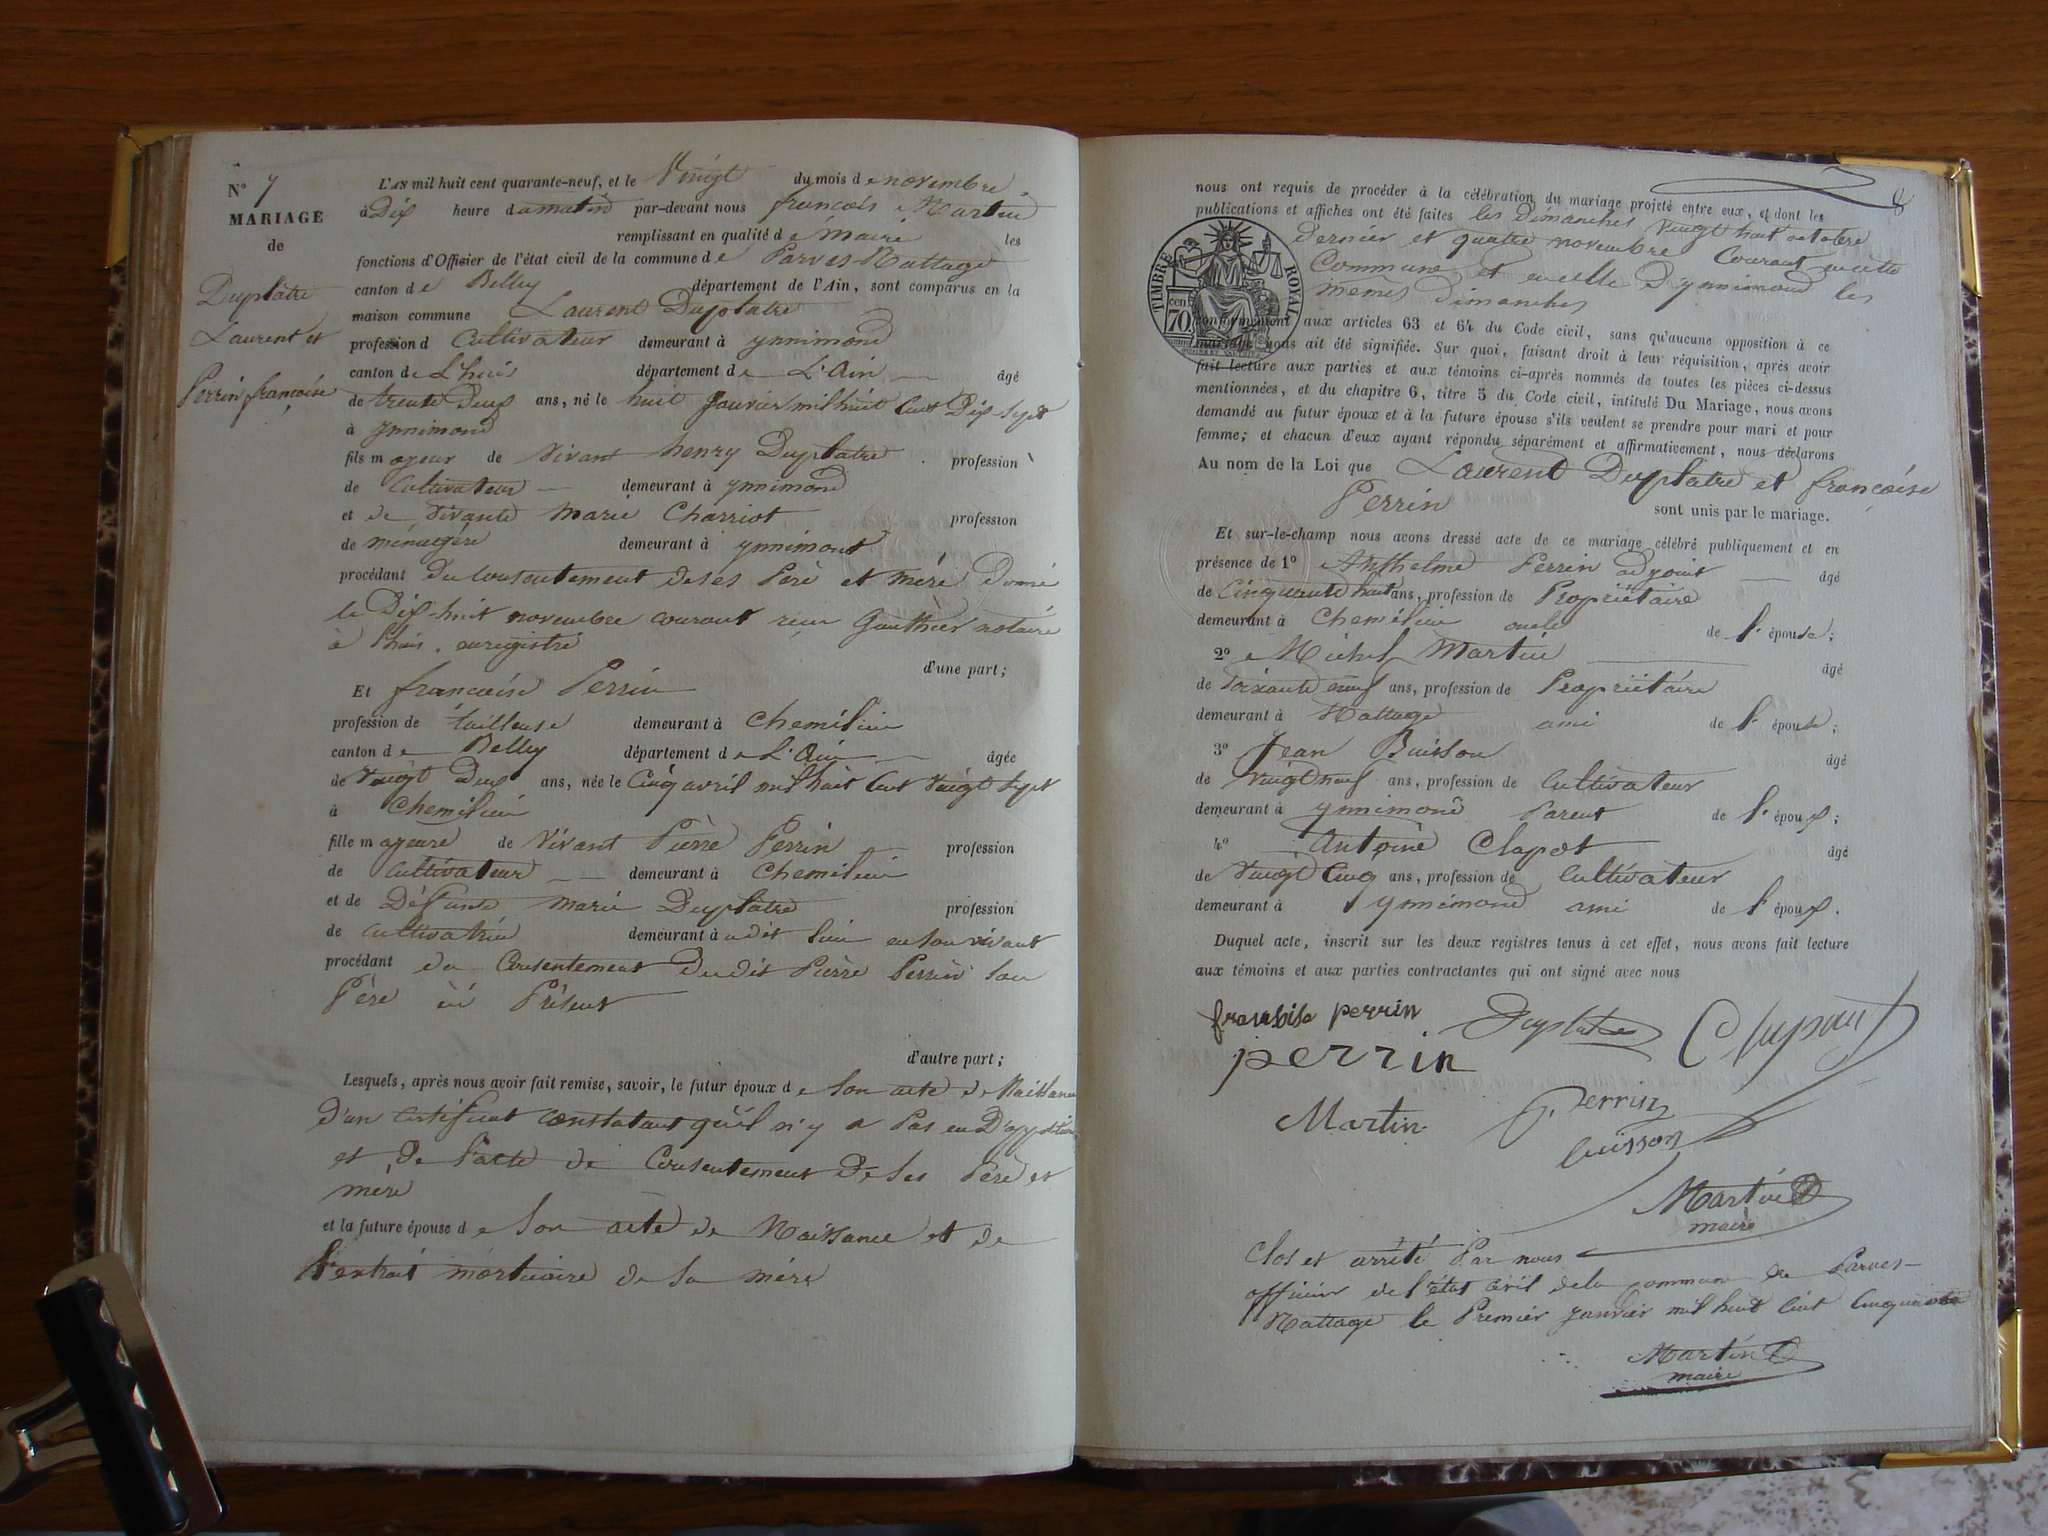 N° 7
MARIAGE
de
Duplâtre
Laurent et
Perrin françoise
L'AN mil huit cent quarante-neuf, et le Vingt du mois de novembre
à Dix heure du matin par-devant nous françois Martin
remplissant en qualité de maire les
fonctions d'Officier de l'état civil de la commune de Parves-Nattage
canton de Belley département de l'Ain, sont comparus en la
maison commune Laurent Duplatre
profession d Cultivateur demeurant à ynnimond
canton de L'huis département de L'Ain âgé
de trente Deux ans, né le huit Janvier mil huit Cent Dix Sept
à ynnimond
fils mayeur de Vivant henry Duplatre profession
de Cultivateur demeurant à ynnimond
et de Vivante Marie Charriot profession
de ménagère demeurant à ynnimont
procédant du Consentement de ses Père et mère Donné
le Dix-huit novembre courant reçu Gauthier notaire
à Lhuis, enregistré
d'une part;
Et françoise Perrin
profession de tailleuse demeurant à Chemélieu
canton de Belley département de L'Ain âgée
de Vingt Deux ans, née le Cinq avril mil huit Cent Vingt Sept
à Chemélieu
fille mayeure de Vivant Pierre Perrin profession
de Cultivateur demeurant à Chemélieu
et de Défunte Marie Duplâtre profession
de Cultivatrice demeurant à udit lieu en son vivant
procédant du Consentement Dudit Pierre Perrin Son
Père ici Présent
d'autre part;
Lesquels, après nous avoir fait remise, savoir, le futur époux de Son acte de Naissance
D'un Certificat Constatant qu'il n'y a Pas eu D'opposition
et De l'acte de Consentement De Ses Père et
mere
et la future épouse de Son acte de Naissance et de
l'extrait mortuaire de Sa mère
8
nous ont requis de procéder à la célébration du mariage projeté entre eux, et dont les
publications et affiches ont été faites les Dimanches Vingt huit octobre
Dernier et quatre novembre Courant en cette
Commune et en celle D'ynnimond les
memes Dimanches
TIMBRE ROYAL
70 cen
conformément aux articles 63 et 64 du Code civil, sans qu'aucune opposition à ce
mariage nous ait été signifiée. Sur quoi, faisant droit à leur réquisition, après avoir
fait lecture aux parties et aux témoins ci-après nommés de toutes les pièces ci-dessus
mentionnées, et du chapitre 6, titre 5 du Code civil, intitulé Du Mariage, nous avons
demandé au futur époux et à la future épouse s'ils veulent se prendre pour mari et pour
femme; et chacun d'eux ayant répondu séparément et affirmativement, nous déclarons
Au nom de la Loi que Laurent Duplatre et françoise
Perrin sont unis par le mariage.
Et sur-le-champ nous avons dressé acte de ce mariage célébré publiquement et en
présence de 1° Anthelme Perrin adjoint âgé
de Cinquante huit ans, profession de Propriétaire
demeurant à Chemélieu oncle de l'épouse;
2° Michel Martin âgé
de Soixante neuf ans, profession de Propriétaire
demeurant à Nattage ami de l'épouse;
3° Jean Buisson âgé
de Vingt neuf ans, profession de Cultivateur
demeurant à ynnimond Parent de l'époux;
4° Antoine Clapot âgé
de Vingt Cinq ans, profession de Cultivateur
demeurant à ynnimond ami de l'époux.
Duquel acte, inscrit sur les deux registres tenus à cet effet, nous avons fait lecture
aux témoins et aux parties contractantes qui ont signé avec nous
fransoise perrin Duplatre Clapaut
perrin
P. Perrin
Martin
buisson
Martin
maire
Clos et arrêté Par nous
officier de l'état Civil de la commune de Parves-
Nattage le Premier janvier mil huit Cent Cinquante
Martin
maire